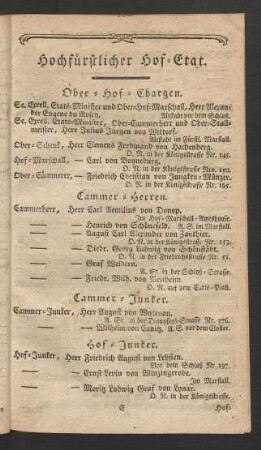 Hochfürstlicher Hof-Etat.
Ober-Hof-Chargen.
Se. Excell. Etats-Minister und Ober-Hof-Marschall, Herr Alexan-
der Eugene du Rosen, Altstadt vor dem Schloß.
Se. Excell. Etats-Minister, Ober-Cammerherr und Ober-Stall-
meister, Herr Julius Jürgen von Wittorf,
Altstadt in Fürstl. Marstall.
Ober-Schenk, Herr Clemens Ferdinand von Hachenberg.
O. N. in der Königsstraße Nr. 145.
Hof-Marschall, — Carl von Boyneburg.
O. N. in der Königsstraße Nro. 150.
Ober-Cämmerer, — Friedrich Christian von Jungken-Münzer.
O. N. in der Königsstraße Nr. 165.
Cammer-Herren.
Cammerherr, Herr Carl Aemilius von Donop.
Im Hof-Marschall-Amthause.
— — Henrich von Schönefeld, A. S. im Marstall.
— — August Carl Alexander von Zanthier.
O. N. in der Königsstraße Nr. 152.
— — Diedr. Georg Ludwig von Schönstädt,
O. N. in der Friedrichsstraße Nr. 51.
— — Graf Weldern.
A. St. in der Schloß-Straße.
— — Friedr. Wilh. von Vertheim
O. N. auf dem Carls-Platz.
Cammer-Junker.
Cammer-Junker, Herr August von Wersabe.
A. St. in der Dionysien-Straße Nr. 976.
— — Wilhelm von Canitz, A. S. vor dem Closter.
Hof-Junker.
Hof-Junker, Herr Friedrich August von Lehsten.
Vor dem Schloß Nr. 197.
— — Ernst Levin von Winzingerode.
Im Marstall.
— — Moritz Ludwig Graf von Lynar.
O. N. in der Königsstraße.
C Hof-